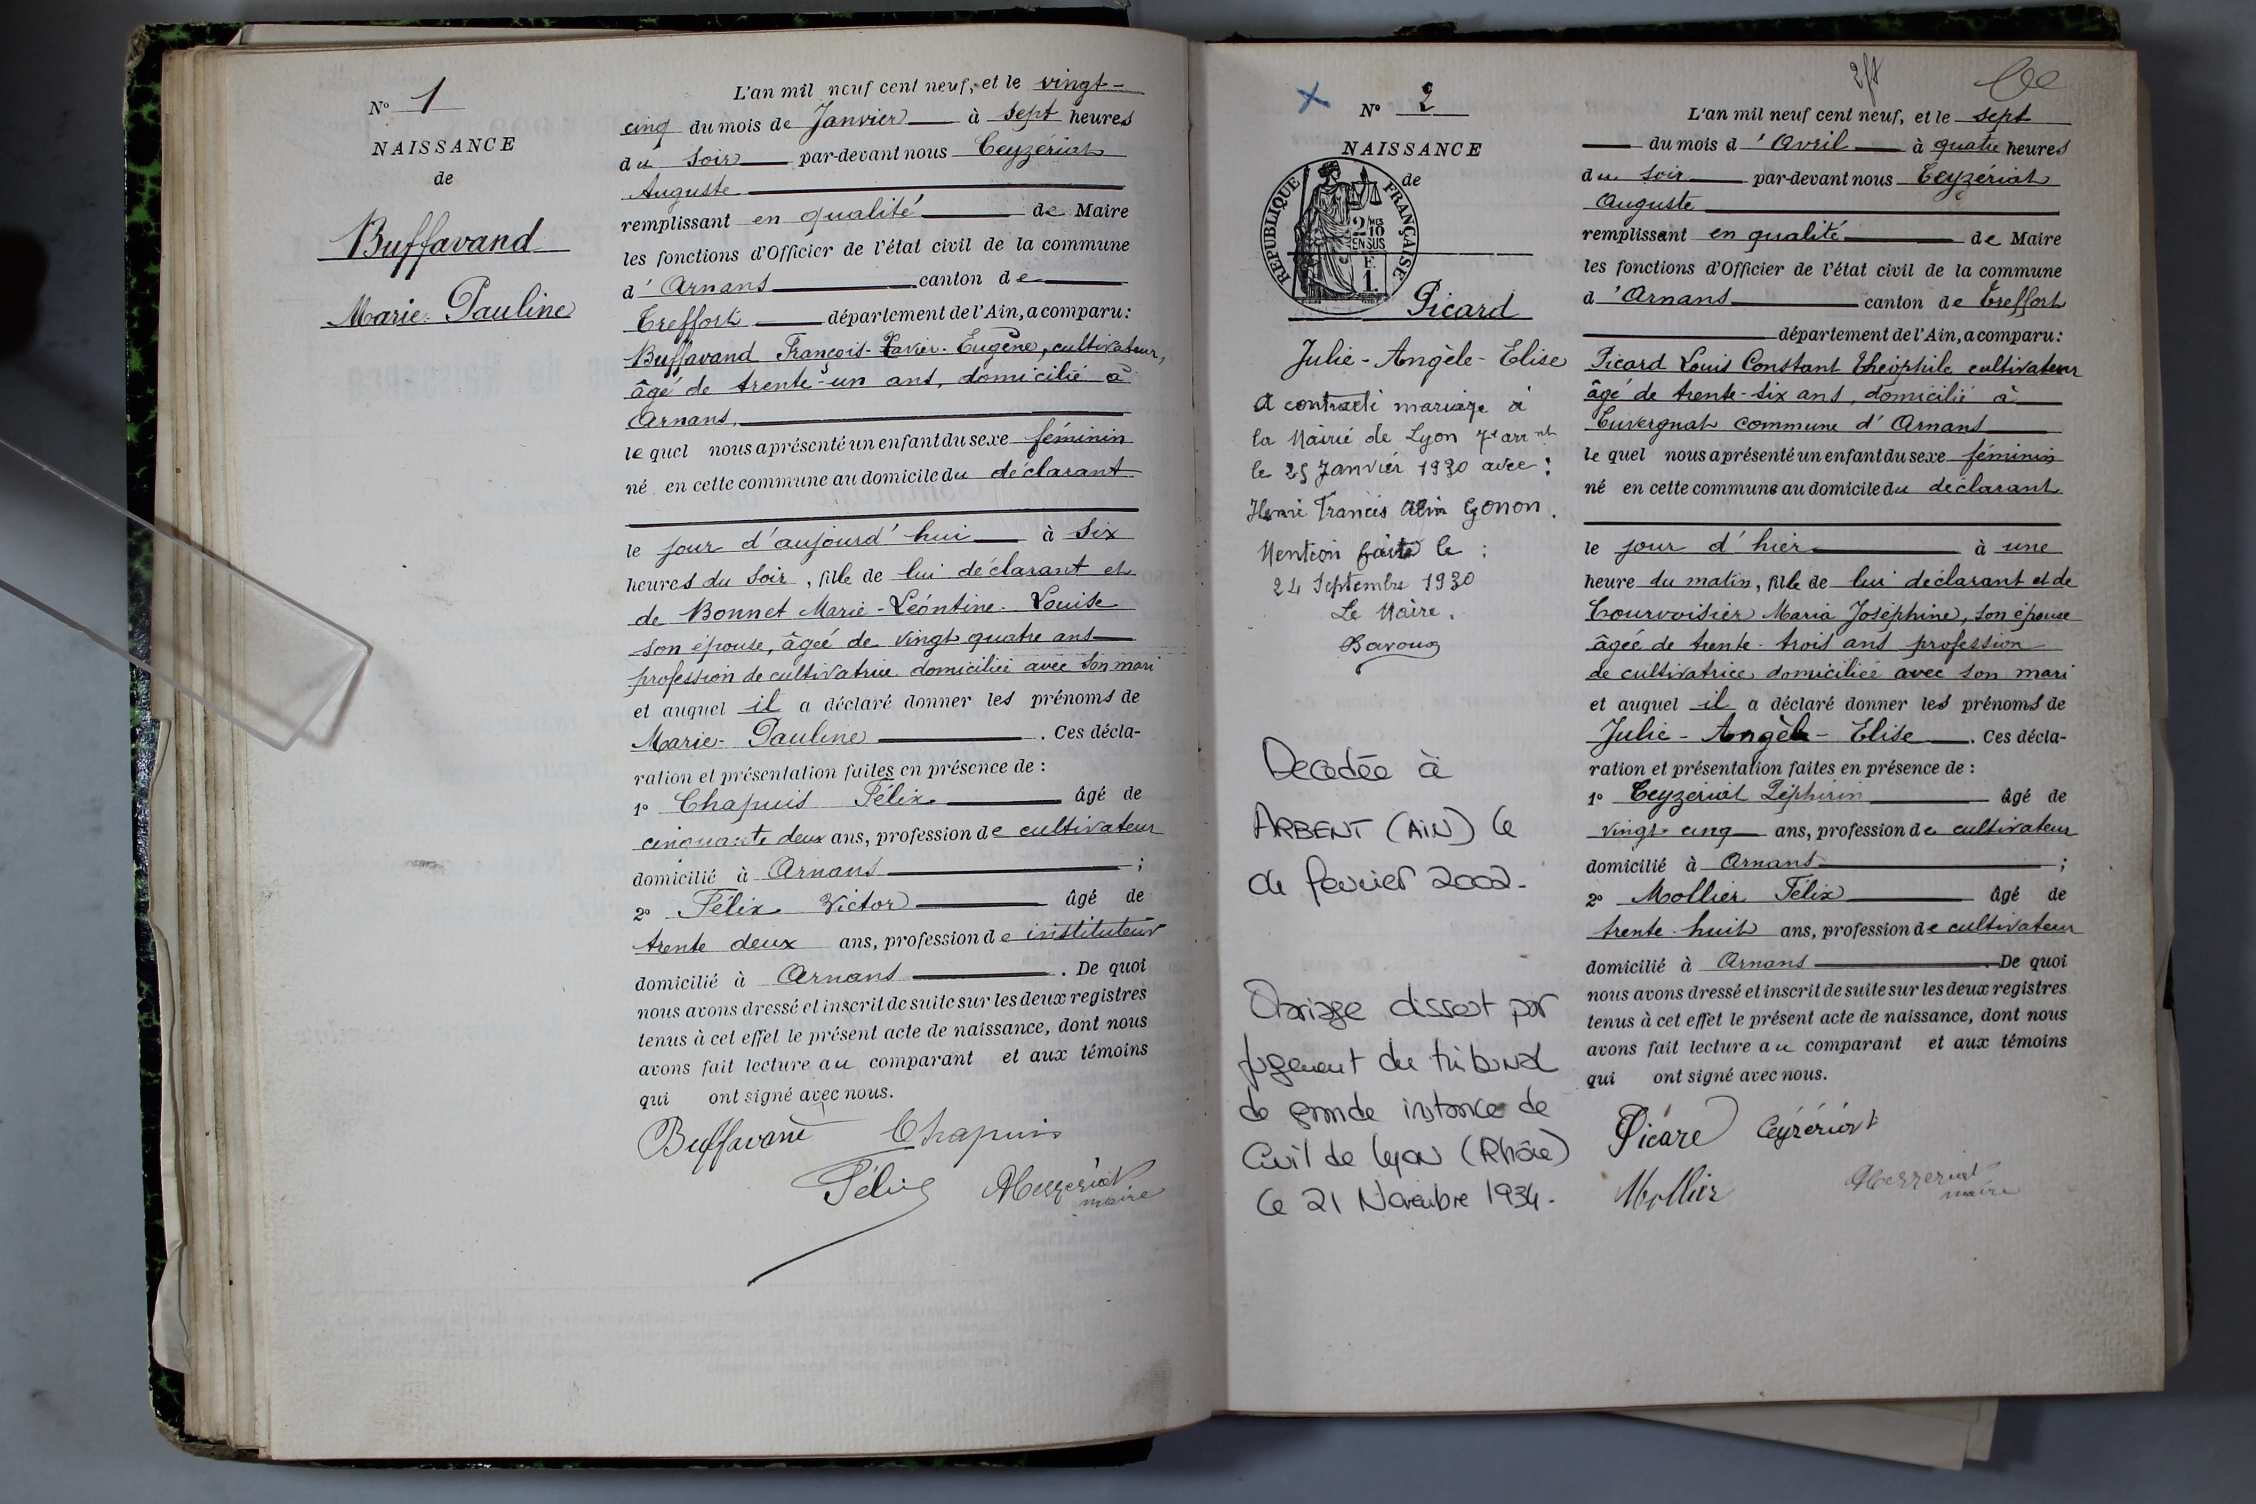 N° 1
NAISSANCE
de
Buffavand
Marie-Pauline
L'an mil neuf cent neuf, et le vingt-
cinq du mois de Janvier à sept heures
du soir par-devant nous Ceyzériat
Auguste
remplissant en qualité de Maire
les fonctions d'Officier de l'état civil de la commune
d'Arnans canton de
Treffort département de l'Ain, a comparu:
Buffavand François-Xavier-Eugène, cultivateur,
âgé de trente-un ans, domicilié à
Arnans,
lequel nous a présenté un enfant du sexe féminin
né en cette commune au domicile du déclarant
le jour d'aujourd'hui à six
heures du soir, fille de lui déclarant et
de Bonnet Marie-Léontine-Louise
son épouse, âgée de vingt quatre ans
profession de cultivatrice domiciliée avec son mari
et auquel il a déclaré donner les prénoms de
Marie-Pauline. Ces décla-
ration et présentation faites en présence de :
1° Chapuis Félix âgé de
cinquante deux ans, profession de cultivateur
domicilié à Arnans ;
2° Félix Victor âgé de
trente deux ans, profession de instituteur
domicilié à Arnans. De quoi
nous avons dressé et inscrit de suite sur les deux registres
tenus à cet effet le présent acte de naissance, dont nous
avons fait lecture au comparant et aux témoins
qui ont signé avec nous.
Buffavand Chapuis
Félix Ceyzériat
maire
N° 2
NAISSANCE
de
RÉPUBLIQUE FRANÇAISE
2/10
EN SUS
Picard
Julie-Angèle-Elise
A contracté mariage à
la Mairie de Lyon 7e arrnt
le 25 Janvier 1930 avec :
Henri Francis Gonon.
Mention faite le :
24 Septembre 1930
Le Maire.
Décédée à
ARBENT (AIN) le
février 2002.
Mariage dissout par
jugement du tribunal
de grande instance de
Civil de Lyon (Rhône)
le 21 Novembre 1934.
L'an mil neuf cent neuf, et le sept
du mois d'Avril à quatre heures
du soir par-devant nous Ceyzériat
Auguste
remplissant en qualité de Maire
les fonctions d'Officier de l'état civil de la commune
d'Arnans canton de Treffort
département de l'Ain, a comparu:
Picard Louis Constant Théophile cultivateur
âgé de trente-six ans, domicilié à
Cuvergnat commune d'Arnans
lequel nous a présenté un enfant du sexe féminin
né en cette commune au domicile du déclarant
le jour d'hier à une
heure du matin, fille de lui déclarant et de
Courvoisier Maria Joséphine, son épouse
âgée de trente-trois ans profession
de cultivatrice domiciliée avec son mari
et auquel il a déclaré donner les prénoms de
Julie-Angèle-Elise. Ces décla-
ration et présentation faites en présence de :
1° Ceyzériat Zéphirin âgé de
vingt-cinq ans, profession de cultivateur
domicilié à Arnans ;
2° Mollier Félix âgé de
trente-huit ans, profession de cultivateur
domicilié à Arnans. De quoi
nous avons dressé et inscrit de suite sur les deux registres
tenus à cet effet le présent acte de naissance, dont nous
avons fait lecture au comparant et aux témoins
qui ont signé avec nous.
Picard Ceyzériat
Mollier Ceyzériat
maire